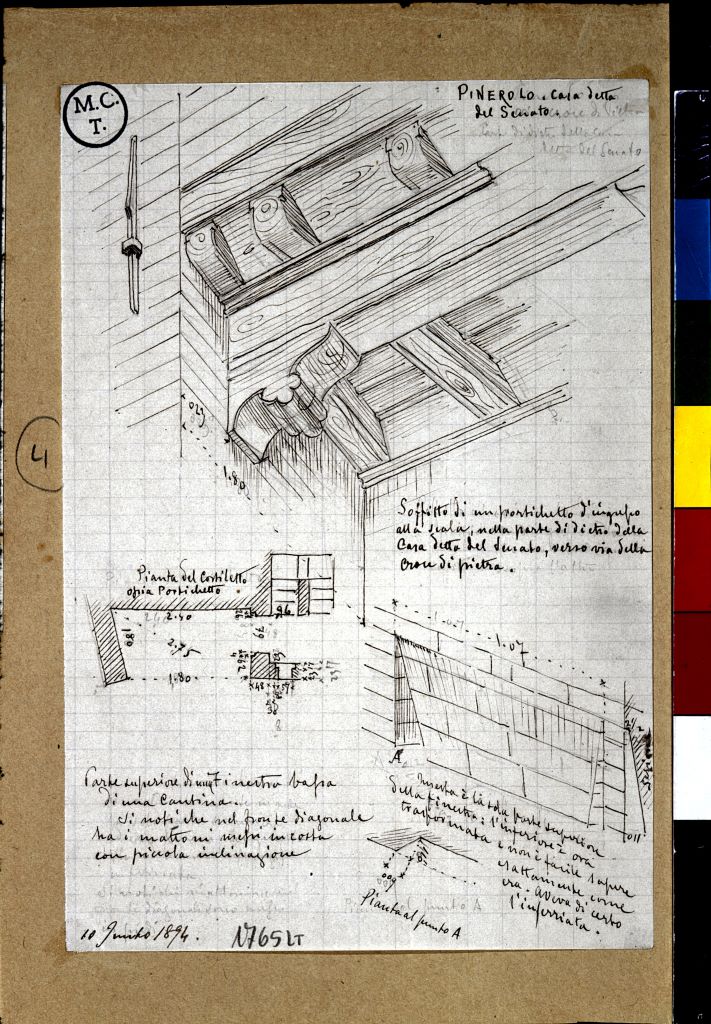 M.C.
T.
PINEROLO. Casa detta
del Senato.
4
0.29
1.80
Soffitto di un portichetto d'ingresso
alla scala, nella parte di dietro della
Casa detta del Senato, verso via della
Croce di pietra.
Pianta del Cortiletto
ossia Portichetto
96
2.40
2.75
1.80
48
1.07
A
Parte superiore di una finestra bassa
di una Cantina.
Si noti che nel fronte diagonale
ha i mattoni messi in costa
con piccola inclinazione
Questa è la sola parte superiore
della finestra: l'inferiore è ora
trasformata e non è facile sapere
esattamente come
era. Aveva di certo
l'inferriata.
011
Pianta al punto A
10 Giugno 1894.
1765 LT